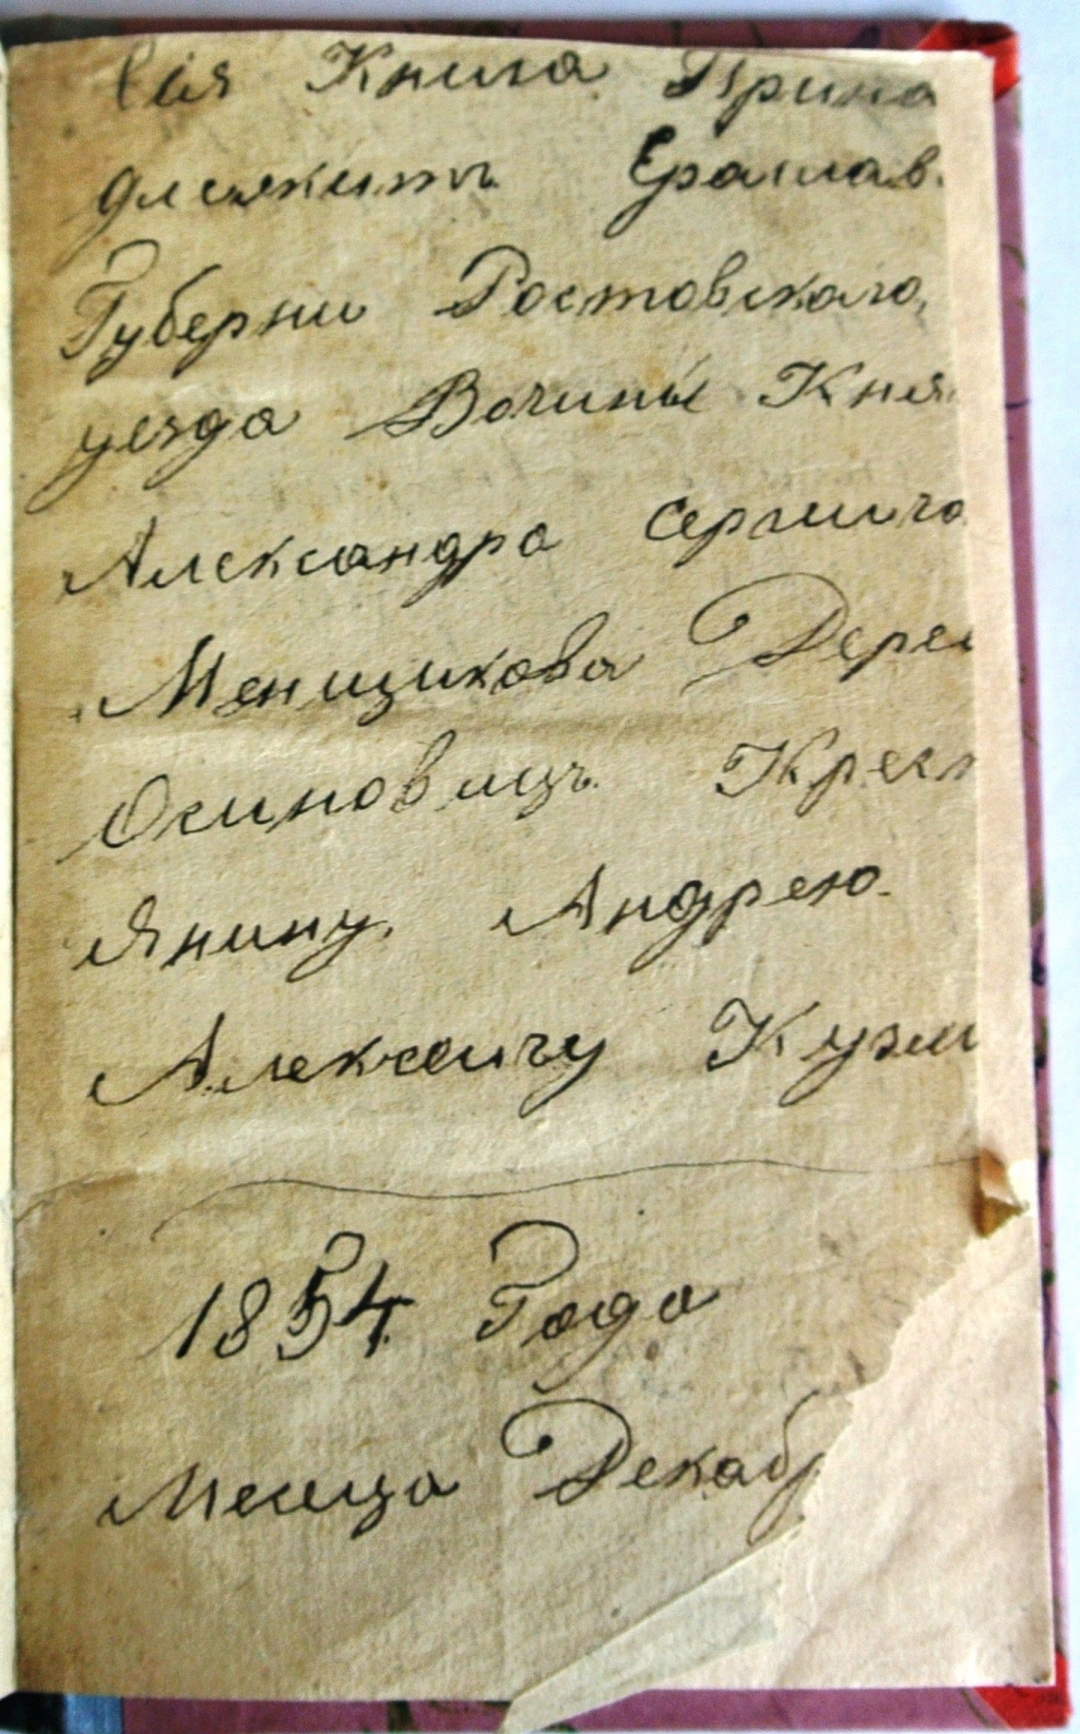 Сія Книга Прина
длежитъ Ераслав.
Губерни Ростовскаго,
уезда Вочины Кня
Александра Сергеича
Менщикова Дерев
Осиновицъ Крест
Янину, Андрею
Алексеичу Кузми
1854 Года
Месеца Декабр